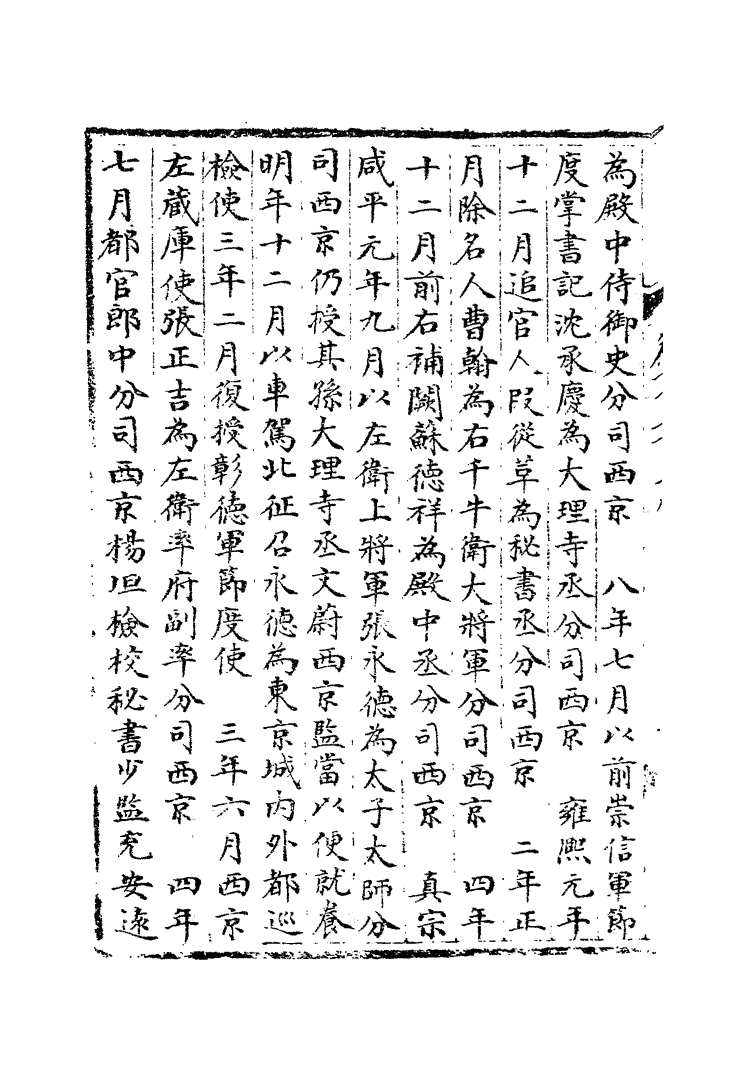 為殿中侍御史分司西京　八年七月以前崇信軍節
度掌書記沈承慶為大理寺丞分司西京　雍熈元年
十二月追官人段從革為秘書丞分司西京　二年正
月除名人曹翰為右千牛衛大將軍分司西京　四年
十二月前右補闕蘇德祥為殿中丞分司西京　真宗
咸平元年九月以左衛上將軍張永德為太子太師分
司西京仍授其孫大理寺丞文蔚西京監當以便就養
明年十二月以車駕北征召永德為東京城内外都巡
檢使三年二月復授彰德軍節度使　三年六月西京
左藏庫使張正吉為左衛率府副率分司西京　四年
七月都官郎中分司西京楊坦檢校秘書少監充安遠